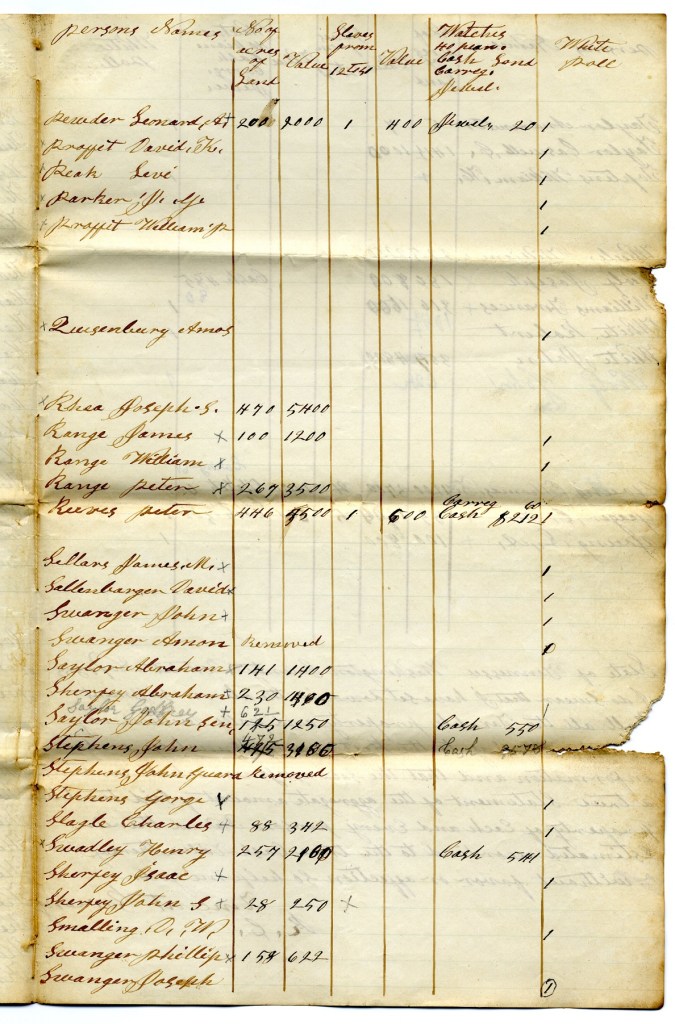 persons Names No of acres of Land Value Slaves from 12 to 50 Value Watches Cash Carreg. Jewel. White poll
Pewder Leonard, A + 200 2000 1 400 Jewel. 20 1
x Proffit David, K. 1
x Peak Levi 1
x Parker, 1
x Proffit William P 1
x Quesenbury Amos 1
x Rhea Joseph S. 470 5400
Range James x 100 1200 1
Range William x 1
Range Peter x 267 3500
Reeves Peter 446 4500 1 600 Carreg 60 Cash $212 1
Sellars James, M. x 1
Sallenbarger David x 1
Swanger John + 1
Swanger Amon Removed
Saylor Abraham x 141 1400 1
Sherfey Abraham ± 230
621
Saylor John Sen 1250 Cash 550
472
Stephens, John Cash
Stephens, John Guard Removed
Stephens Gorge x 1
Slagle Charles + 88 342 1
x Swadley Henry 257 Cash
Sherfey Isaac + 1
Sherfey John S + 28 250 x
Smalling, D, W, 1
Swanger Phillip x 622
Swanger Joseph 1